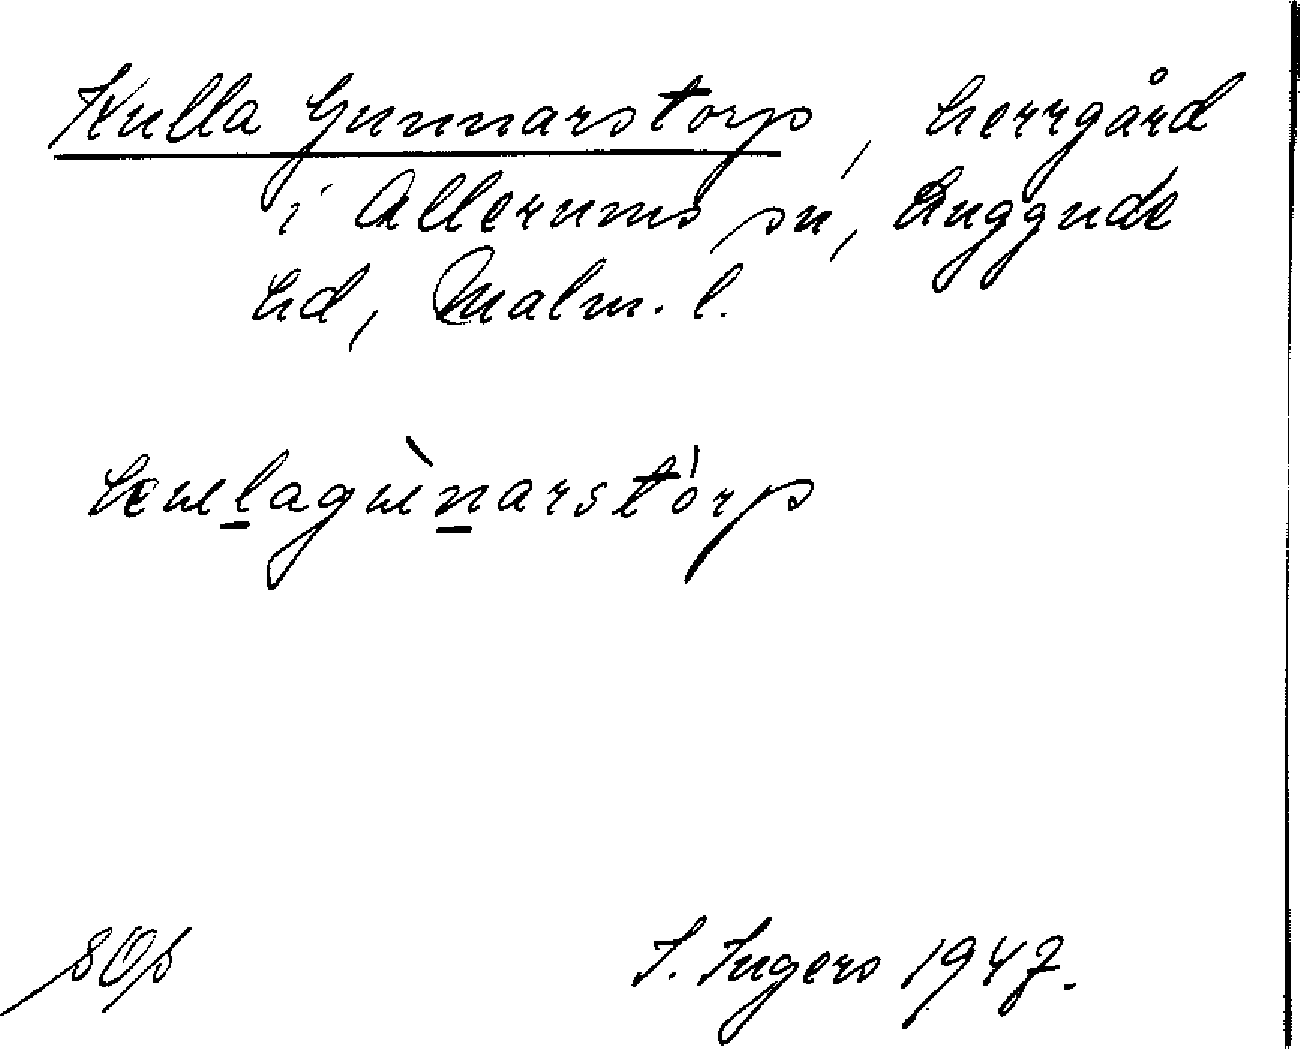 Kulla Gunnarstorp, herrgård
i Allerums sn, Luggude
hd, Malm. l.
I. Ingers 1947.